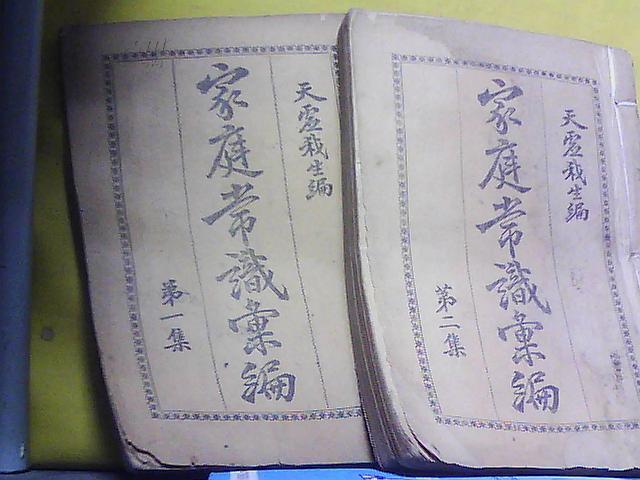 天虛我生編
家庭常識彙編
第一集
天虛我生編
家庭常識彙編
第二集